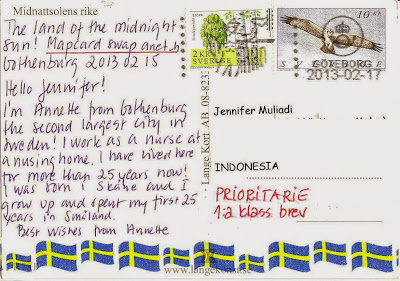 Midnattsolens rike
The land of the midnight
sun! Mapcard swap anet b
Gothenburg 2013 02 15
Hello Jennifer!
I'm Annette from Gothenburg
the second largest city in
Sweden! I work as a nurse at
a nusing home. I have lived here
for more than 25 years now!
I was born i Skåne and I
grow up and spent my first 25
years in Småland.
Best wishes from Annette
www.langekonst.se
Lange Kort AB 08-823
2 KR
SVERIGE
10 Kr
S
E
GÖTEBORG
2013-02-17
Jennifer Muliadi
INDONESIA
PRIORITARIE
1:a klass brev